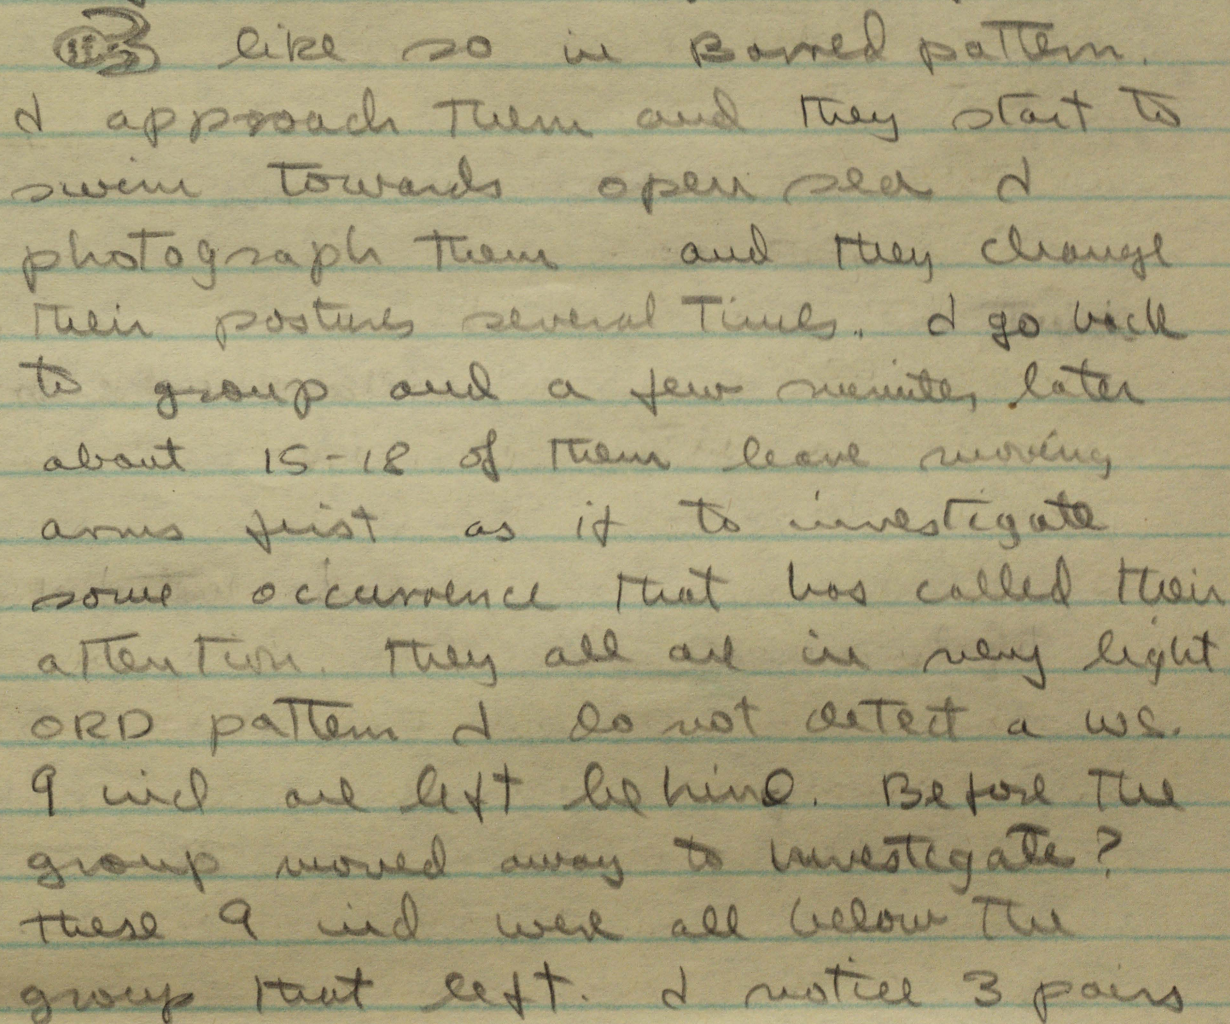 like so in Barred pattern.
I approach them and they start to
swim towards open sea I
photograph them and they change
their postures several times. I go back
to group and a few minutes later
about 15-18 of them leave moving
arms first as if to investigate
some occurrence that has called their
attention. They all are in very light
ORD pattern I do not detect a WS.
9 ind are left behind. Before the
group moved away to investigate?
these 9 ind were all below the
group that left. I notice 3 pairs